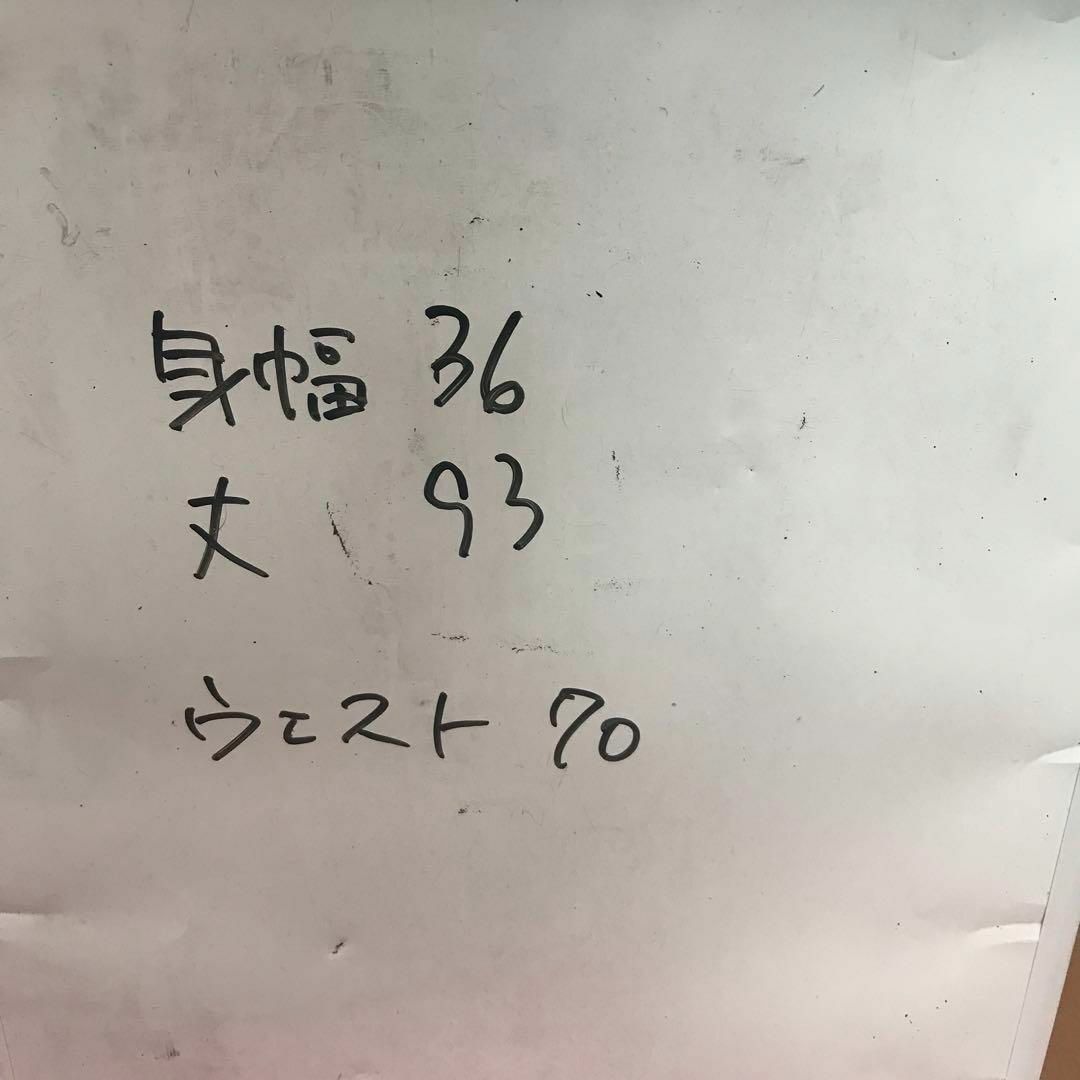 身幅 36
丈 93
ウエスト 70